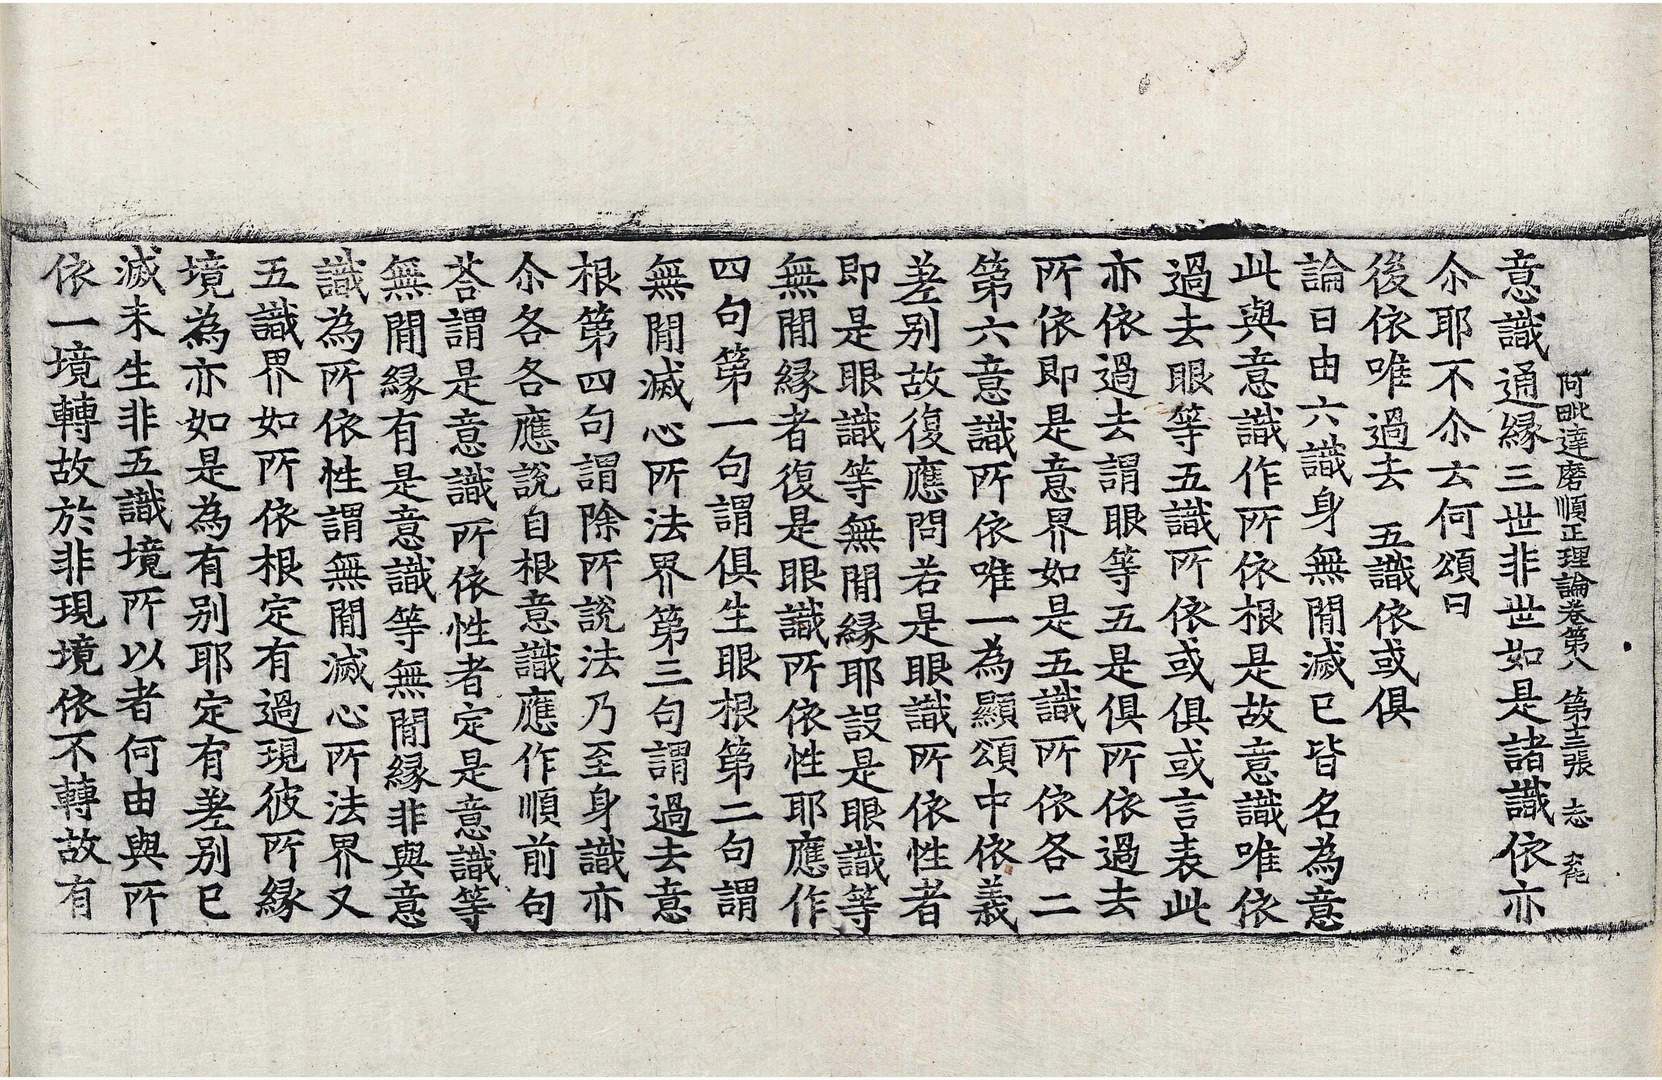 阿毗達磨順正理論卷第八 第十三張 志
意識通緣三世非世如是諸識依亦
尒耶不尒云何頌曰
後依唯過去 五識依或俱
論曰由六識身無間滅已皆名為意
此與意識作所依根是故意識唯依
過去眼等五識所依或俱或言表此
亦依過去謂眼等五是俱所依過去
所依即是意界如是五識所依各二
第六意識所依唯一為顯頌中依義
差别故復應問若是眼識所依性者
即是眼識等無間緣耶設是眼識等
無間緣者復是眼識所依性耶應作
四句第一句謂俱生眼根第二句謂
無間滅心所法界第三句謂過去意
根第四句謂除所說法乃至身識亦
尒各各應說自根意識應作順前句
荅謂是意識所依性者定是意識等
無間緣有是意識等無間緣非與意
識為所依性謂無間滅心所法界又
五識界如所依根定有過現彼所緣
境為亦如是為有别耶定有差别已
滅未生非五識境所以者何由與所
依一境轉故於非現境依不轉故有